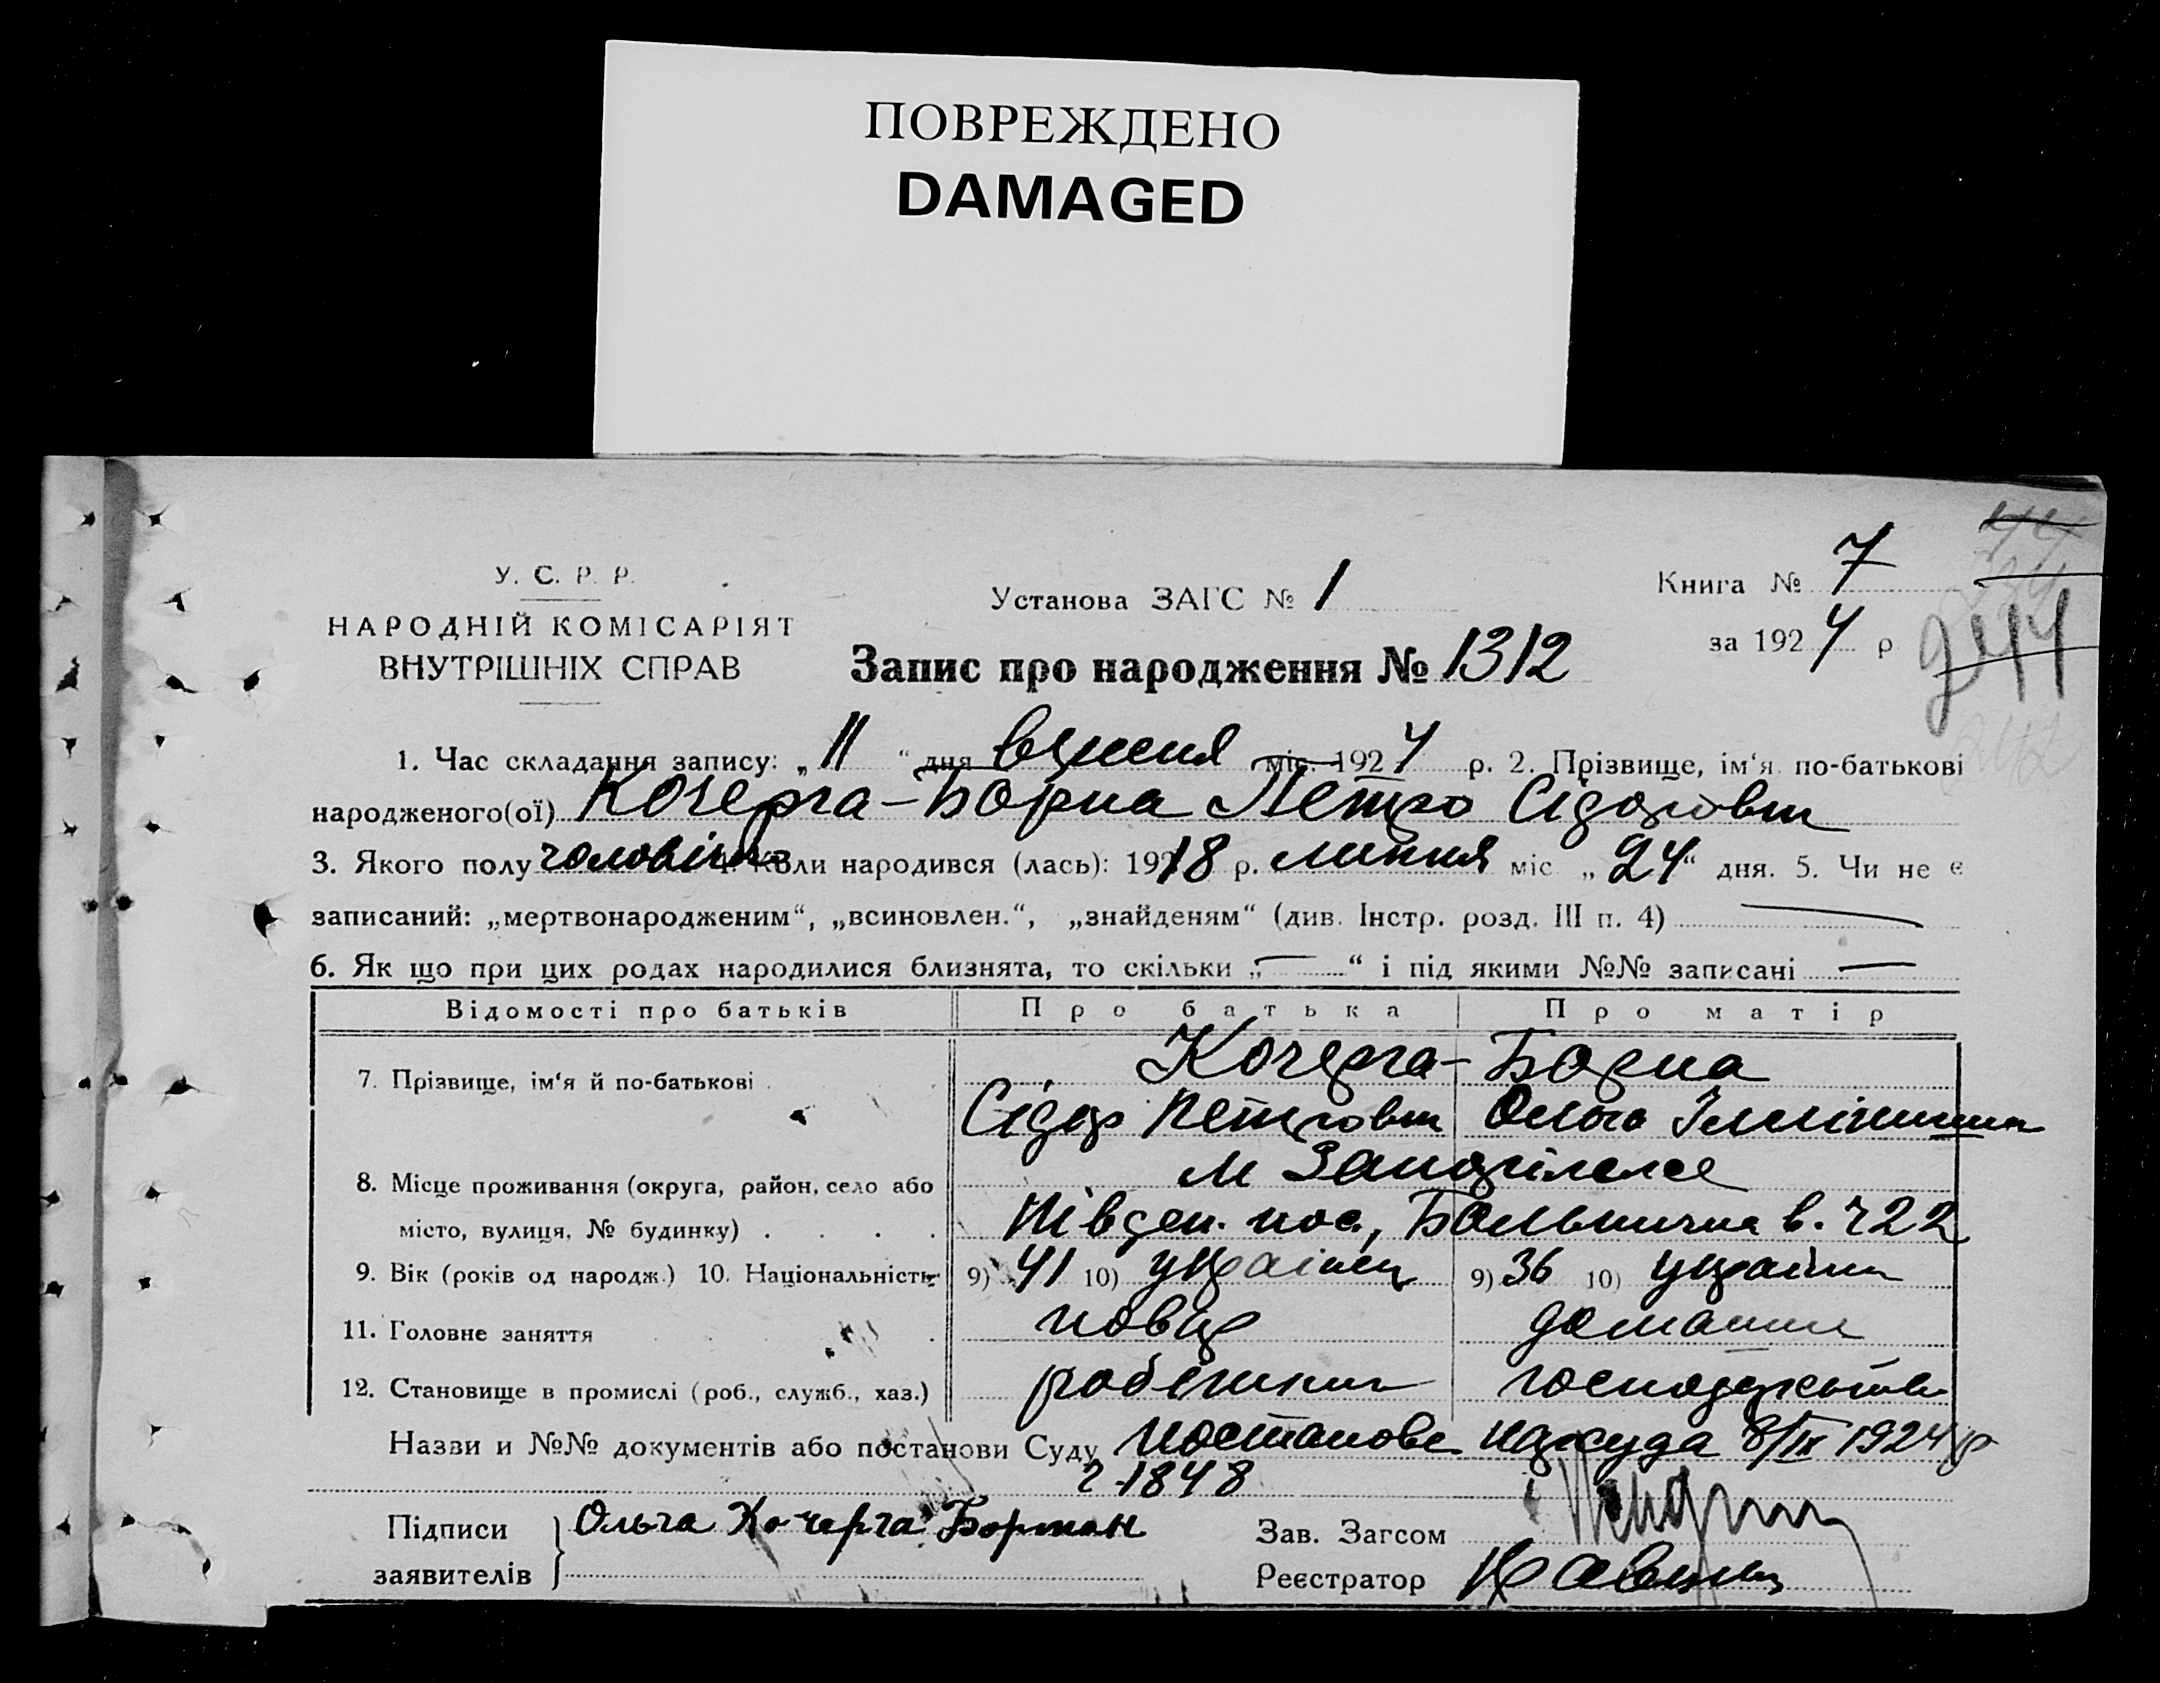 ПОВРЕЖДЕНО
DAMAGED
У. С. Р. Р.
НАРОДНІЙ КОМІСАРІЯТ
ВНУТРІШНІХ СПРАВ
Установа ЗАГС № 1
Запис про народження № 1312
Книга № 7
за 1924 р
244
1. Час складання запису: „11“ дня вересня міс. 1924 р. 2. Прізвище, ім‘я по-батькові
народженого(ої) Кочерга-Борна Петро Сідорович
3. Якого полу чоловічо 4. Коли народився (лась): 1918 р. липня міс „24“ дня. 5. Чи не є
записаний: „мертвонародженим“, „всиновлен.“, „знайденям“ (див. Інстр. розд. III п. 4) —
6. Як що при цих родах народилися близнята, то скільки „—“ і під якими №№ записані —
Відомості про батьків Про батька Про матір
7. Прізвище, ім‘я й по-батькові Кочерга-Борна
Сідор Петрович Ольга
м Запоріжже
8. Місце проживання (округа, район, село або
місто, вулиця, № будинку) Півден. пос., Больнична в. ч 22
9. Вік (років од народж.) 10. Національність 9) 41 10) українец 9) 36 10) українка
11. Головне заняття домашнє
12. Становище в промислі (роб., служб., хаз.) робітник господарство
Назви и №№ документів або постанови Суду Постанова нарсуда 8/IX 1924 р
ч 1848
Підписи Ольга Кочерга Борман
заявителів
Зав. Загсом
Реєстратор